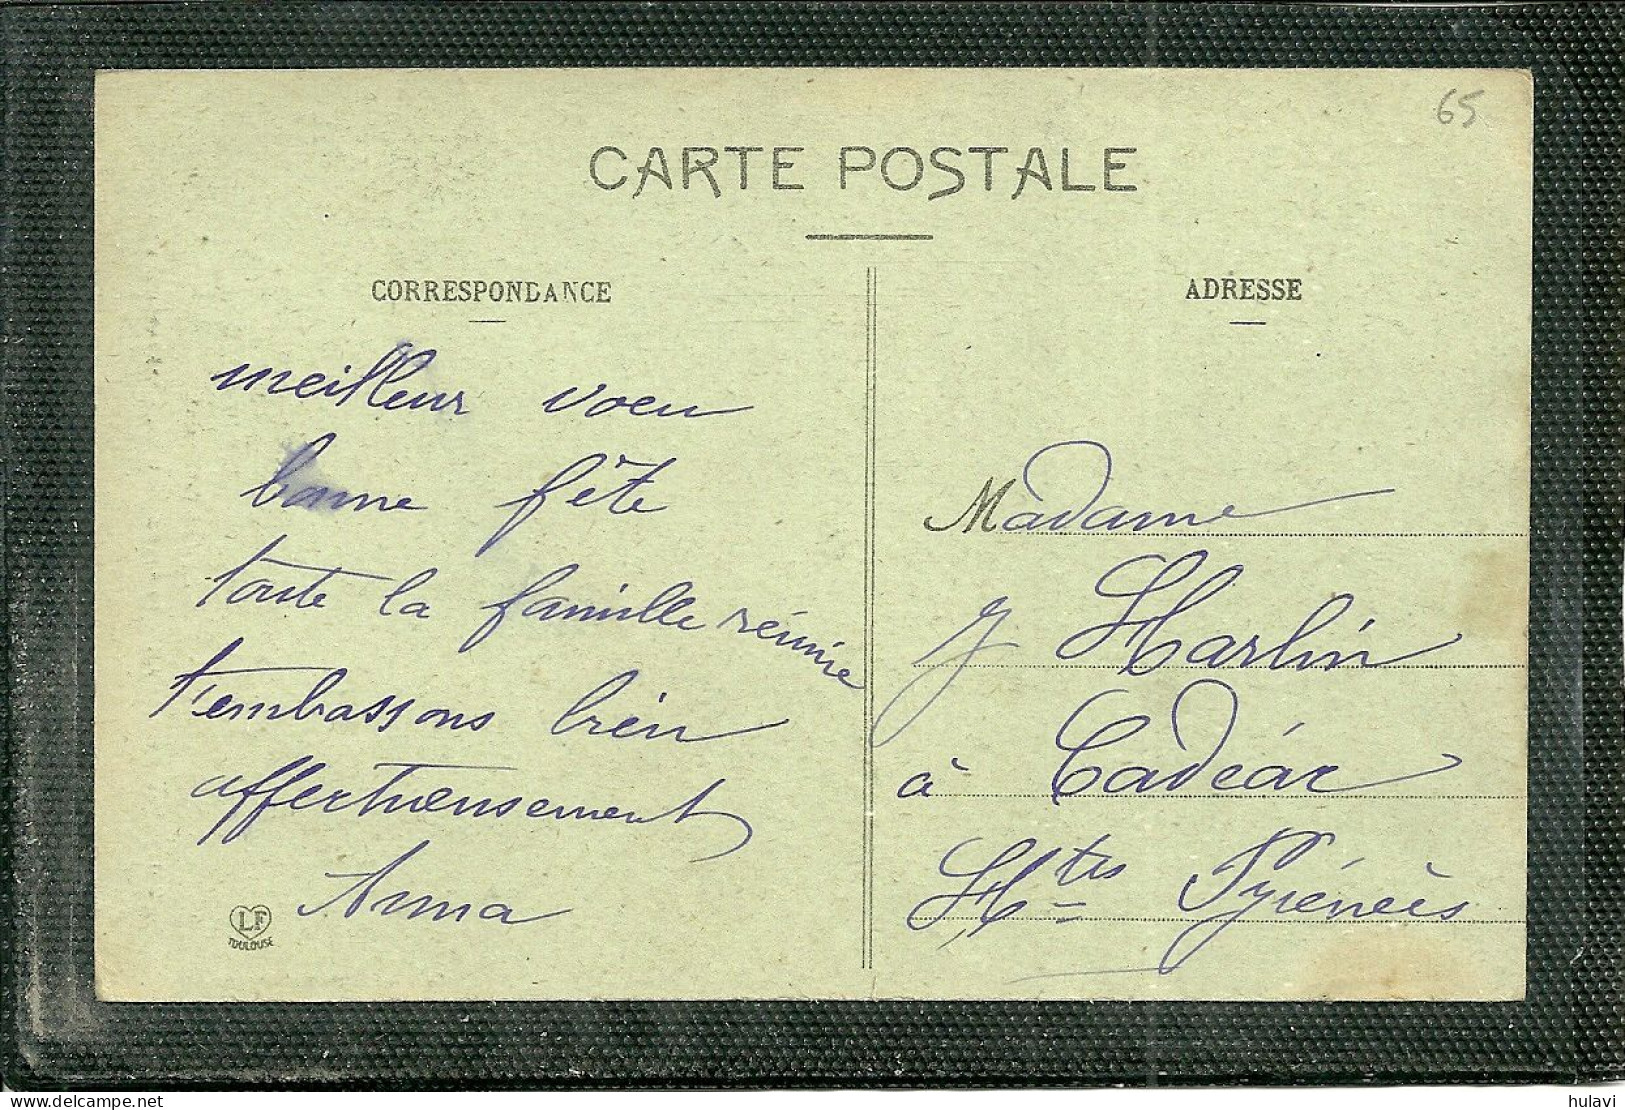 65
CARTE POSTALE
CORRESPONDANCE
meilleur voeu
bonne fête
toute la famille réunie
t'embassons bien
affectueusement
Anna
LF
TOULOUSE
ADRESSE
Madame
J Harlin
à Cadéac
Htes Pyrénées
delcampe.net
hulavi